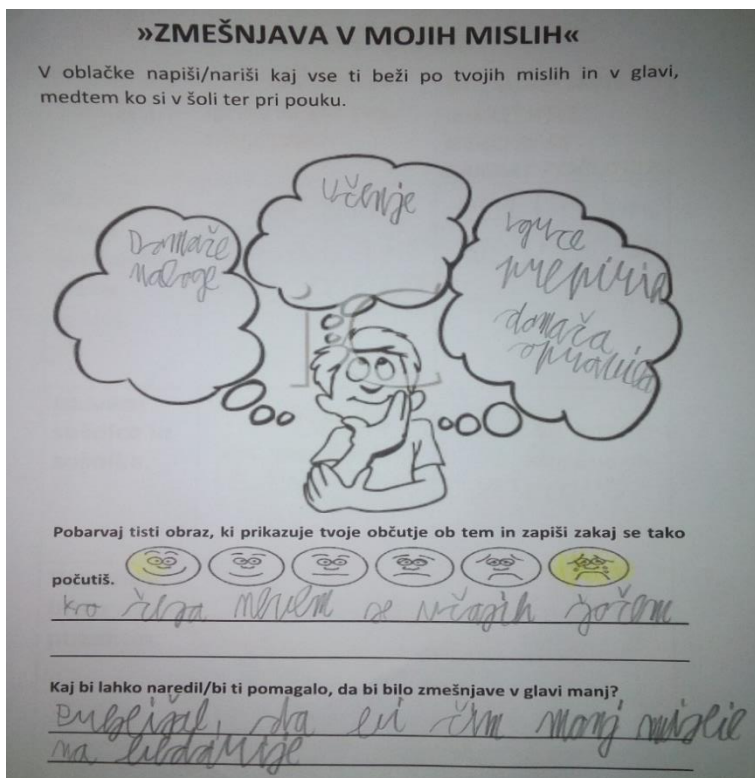 »ZMEŠNJAVA V MOJIH MISLIH«
V oblačke napiši/nariši kaj vse ti beži po tvojih mislih in v glavi,
medtem ko si v šoli ter pri pouku.
Domače
naloge
učenje
igrce
prepiria
domača
opravila
Pobarvaj tisti obraz, ki prikazuje tvoje občutje ob tem in zapiši zakaj se tako
počutiš.
se včasih
Kaj bi lahko naredil/bi ti pomagalo, da bi bilo zmešnjave v glavi manj?
da bi čim manj
na